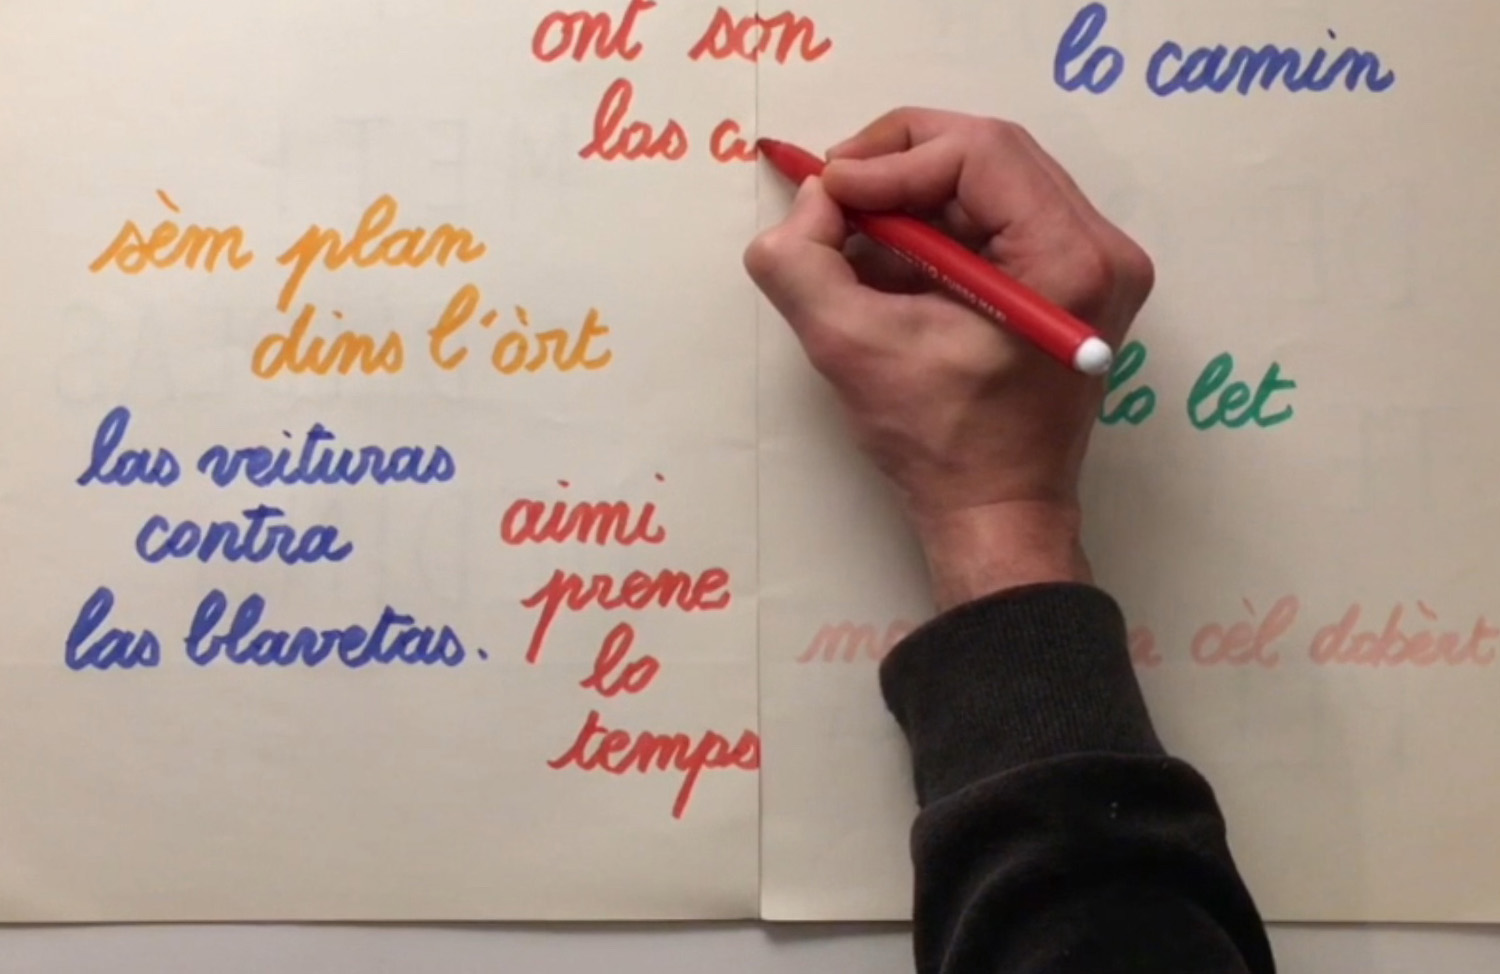 ont son
las
lo camin
sèm plan
dins l'òrt
lo let
las veituras
contra
las blavetas.
aimi
prene
lo
temps
cèl dobèrt